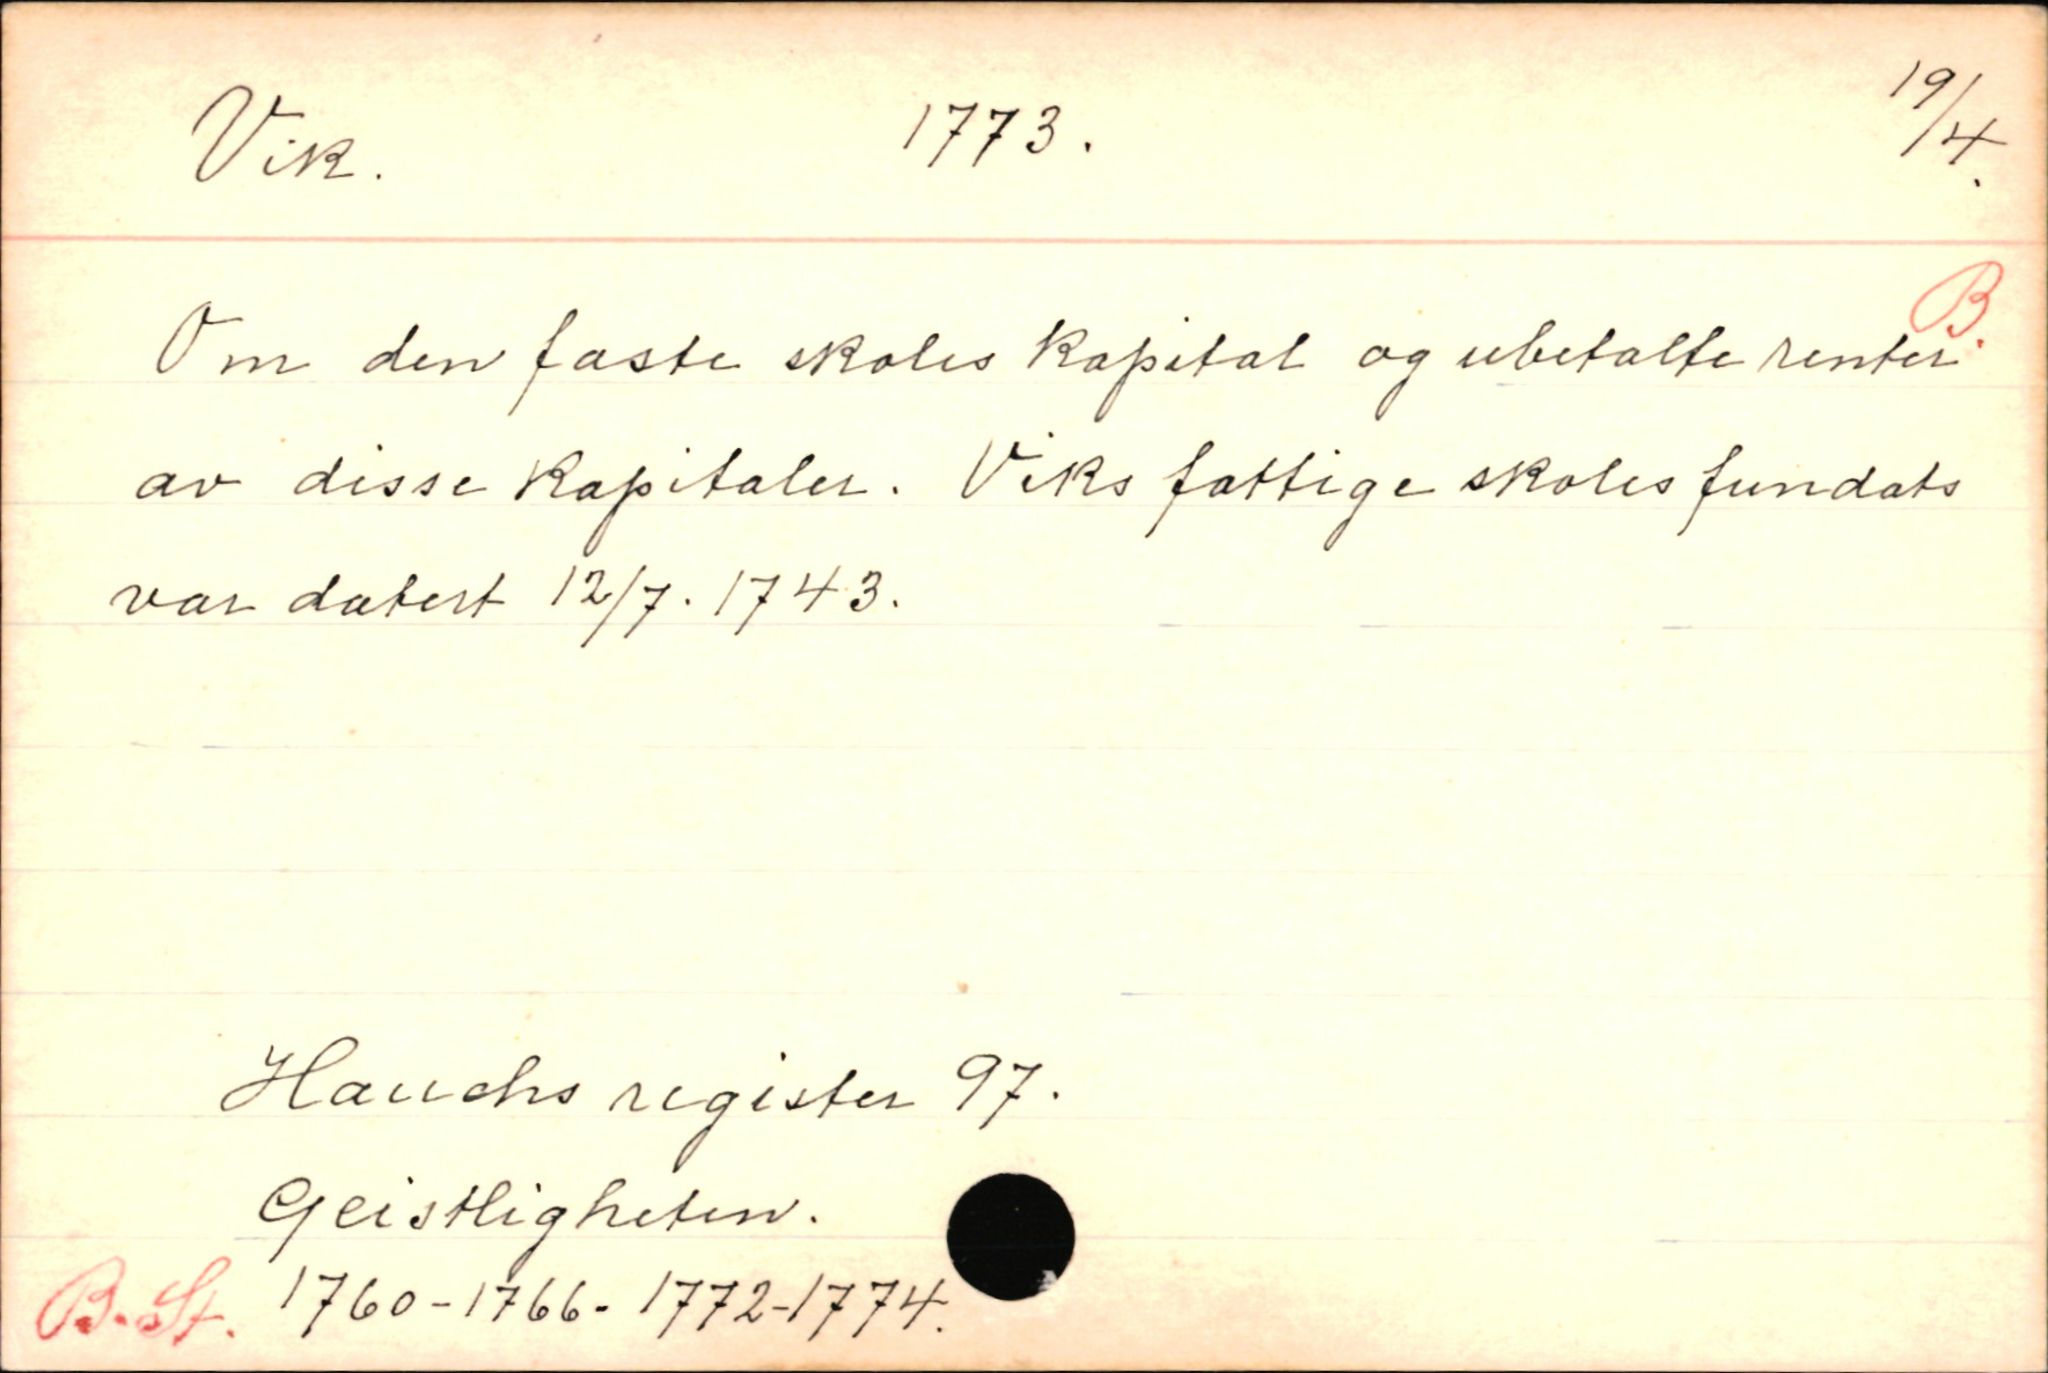 Vik. 1773. 19/4.
B.
Om den faste skoles kapital og ubetalte renter
av disse kapitaler. Viks fattige skoles fundats
var datert 12/7. 1743.
Hauchs register 97.
Geistligheten.
B. St. 1760-1766- 1772-1774.